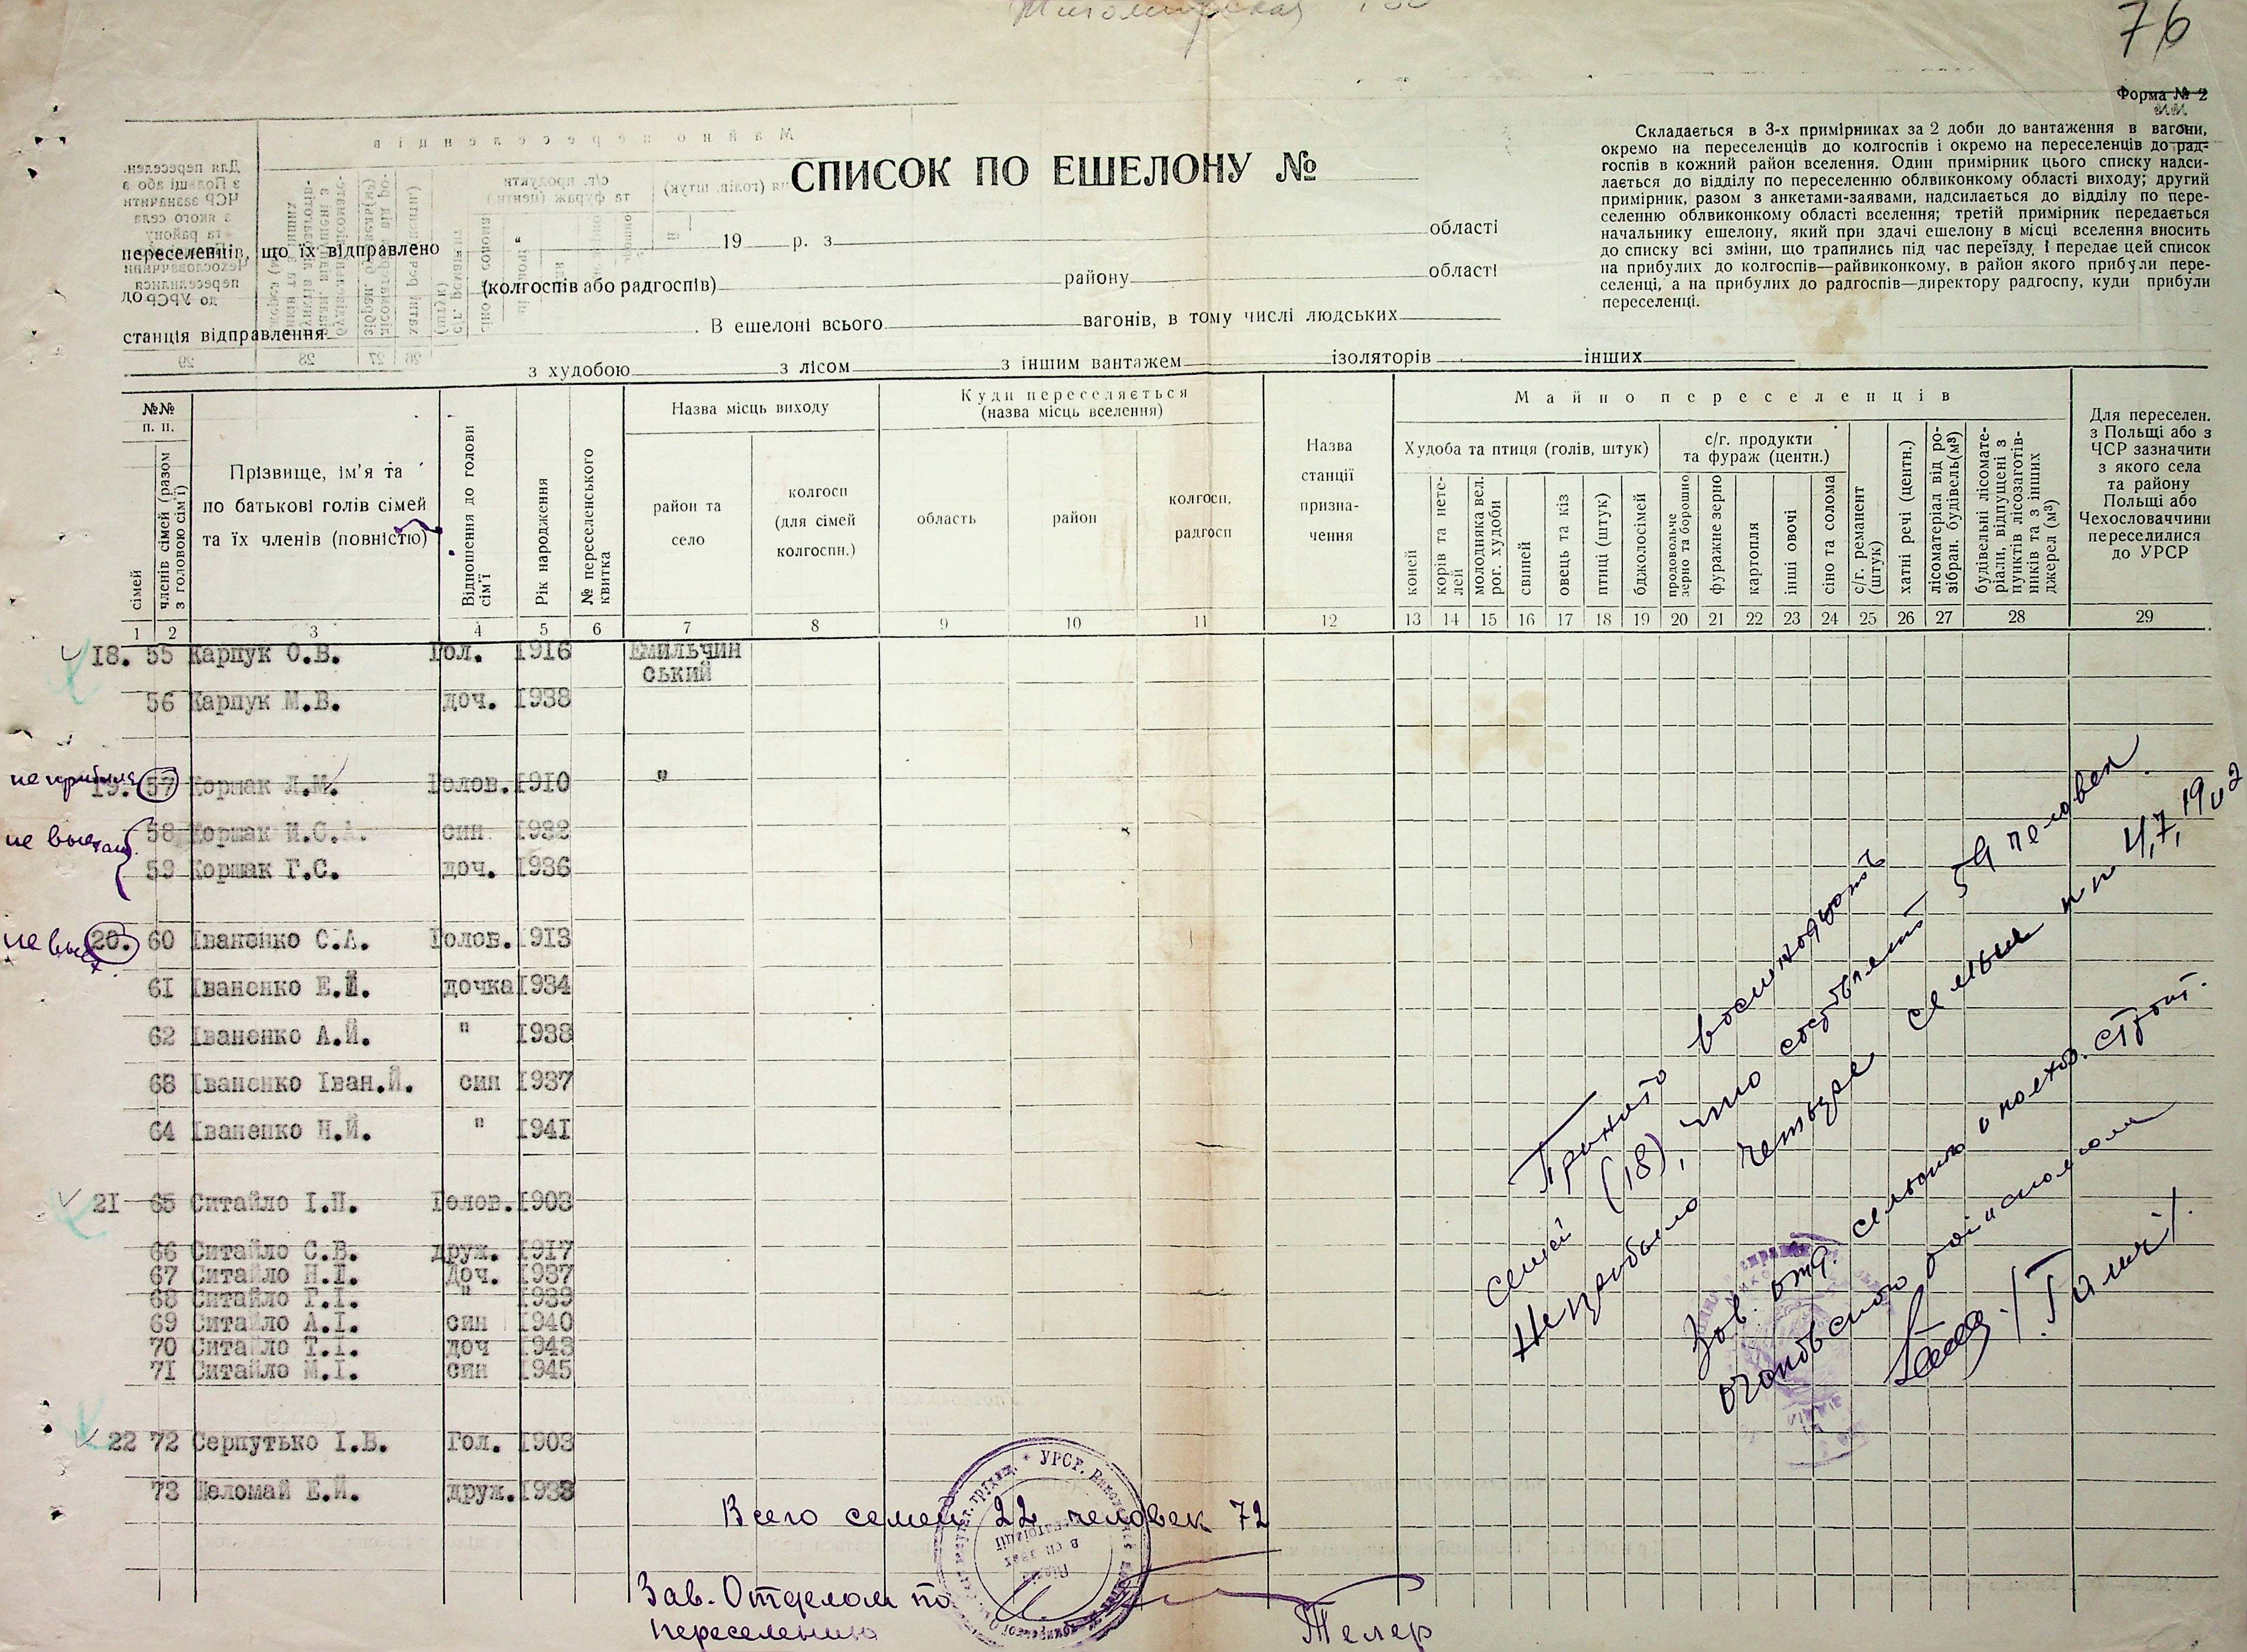 Житомирская
76
Форма № 2
Складається в 3-х примірниках за 2 доби до вантаження в вагони,
окремо на переселенців до колгоспів і окремо на переселенців до рад-
госпів в кожний район вселення. Один примірник цього списку надси-
лається до відділу по переселенню облвиконкому області виходу; другий
примірник, разом з анкетами-заявами, надсилається до відділу по пере-
селенню облвиконкому області вселення; третій примірник передається
начальнику ешелону, який при здачі ешелону в місці вселення вносить
до списку всі зміни, що трапились під час переїзду. І передає цей список
на прибулих до колгоспів—райвиконкому, в район якого прибули пере-
селенці, а на прибулих до радгоспів—директору радгоспу, куди прибули
переселенці.
СПИСОК ПО ЕШЕЛОНУ №
переселенців, що їх відправлено " 19 р. з області
до (колгоспів або радгоспів) району області
станція відправлення . В ешелоні всього вагонів, в тому числі людських
з худобою з лісом з іншим вантажем ізоляторів інших
№№ п. п.
сімей
членів сімей (разом з головою сім'ї)
Прізвище, ім'я та
по батькові голів сімей
та їх членів (повністю)
Відношення до голови сім'ї
Рік народження
№ переселенського квитка
Назва місць виходу
район та село
колгосп (для сімей колгоспн.)
Куди переселяється
(назва місць вселення)
область
район
колгосп, радгосп
Назва станції призна- чення
Майно переселенців
Худоба та птиця (голів, штук)
коней
корів та нете- лей
молодняка вел. рог. худоби
свиней
овець та кіз
птиці (штук)
бджолосімей
с/г. продукти та фураж (центн.)
продовольче зерно та борошно
фуражне зерно
картопля
інші овочі
сіно та солома
с/г. реманент (штук)
хатні речі (центн.)
лісоматеріал від ро- зібран. будівель (м³)
будівельні лісомате- ріали, відпущені з пунктів лісозаготів- ників та з інших джерел (м³)
Для переселен.
з Польщі або з
ЧСР зазначити
з якого села
та району
Польщі або
Чехословаччини
переселилися
до УРСР
1 2 3 4 5 6 7 8 9 10 11 12 13 14 15 16 17 18 19 20 21 22 23 24 25 26 27 28 29
18. 55 Карпук О.В. Гол. 1916 Емильчин
ський
56 Карпук М.В. доч. 1938
не прибыла
19. 57 Коршак Л.М. Голов. 1910 "
58 Коршак И.С. син 1932
не выехали
59 Коршак Г.С. доч. 1936
не выех.
20. 60 Іваненко С.А. Голов. 1913
61 Іваненко Е.Й. дочка 1934
62 Іваненко А.Й. " 1938
63 Іваненко Іван.Й. син 1937
64 Іваненко Н.Й. " 1941
21 65 Ситайло І.П. Голов. 1903
66 Ситайло С.В. друж. 1917
67 Ситайло Н.І. Доч. 1937
68 Ситайло Г.І. " 1939
69 Ситайло А.І. син 1940
70 Ситайло Т.І. доч 1943
71 Ситайло М.І. син 1945
22 72 Серпутько І.В. Гол. 1903
73 Шеломай Е.Й. друж. 1933
Принято восемнадцать
семей (18), что составляет 59 человек.
Не прибыло четыре семьи
Зав. отд. сельхоз и колхоз. строит.
Очаковского райисполкома
/Галич/
Всего семей 22 человек 72
Зав. Отделом по
переселению Телер